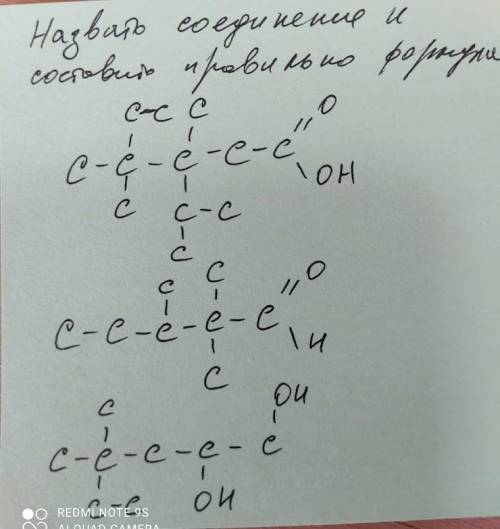 Назвать соединение и
составить правильно формулы
C-C C
C-C-C-C-C
O
OH
C C-C
C
C C
C-C-C-C-C
O
H
C
C
OH
C-C-C-C-C
C-C OH
REDMI NOTE 9S
AI QUAD CAMERA